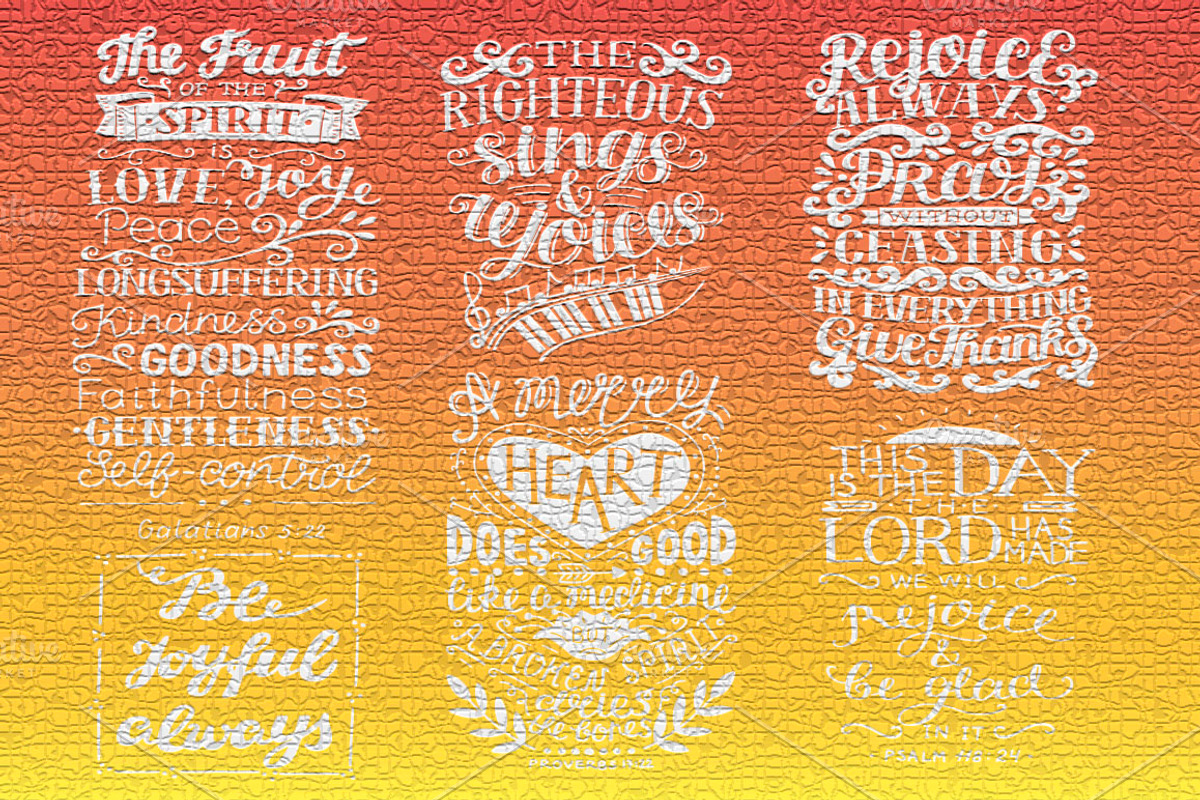 The Fruit
OF THE
SPIRIT
IS
LOVE, Joy
Peace
LONGSUFFERING
Kindness
GOODNESS
Faithfulness
GENTLENESS
Self-control
Galatians 5:22
Be
joyful
always
THE
RIGHTEOUS
sings
&
rejoices
A merry
HEART
DOES GOOD
like a medicine
BUT
A BROKEN SPIRIT
dries
the bones
PROVERBS 17:22
Rejoice
ALWAYS
PRAY
WITHOUT
CEASING
IN EVERYTHING
Give Thanks
THIS
IS THE DAY
THE
LORD HAS
MADE
WE WILL
rejoice
&
be glad
IN IT
PSALM 118:24